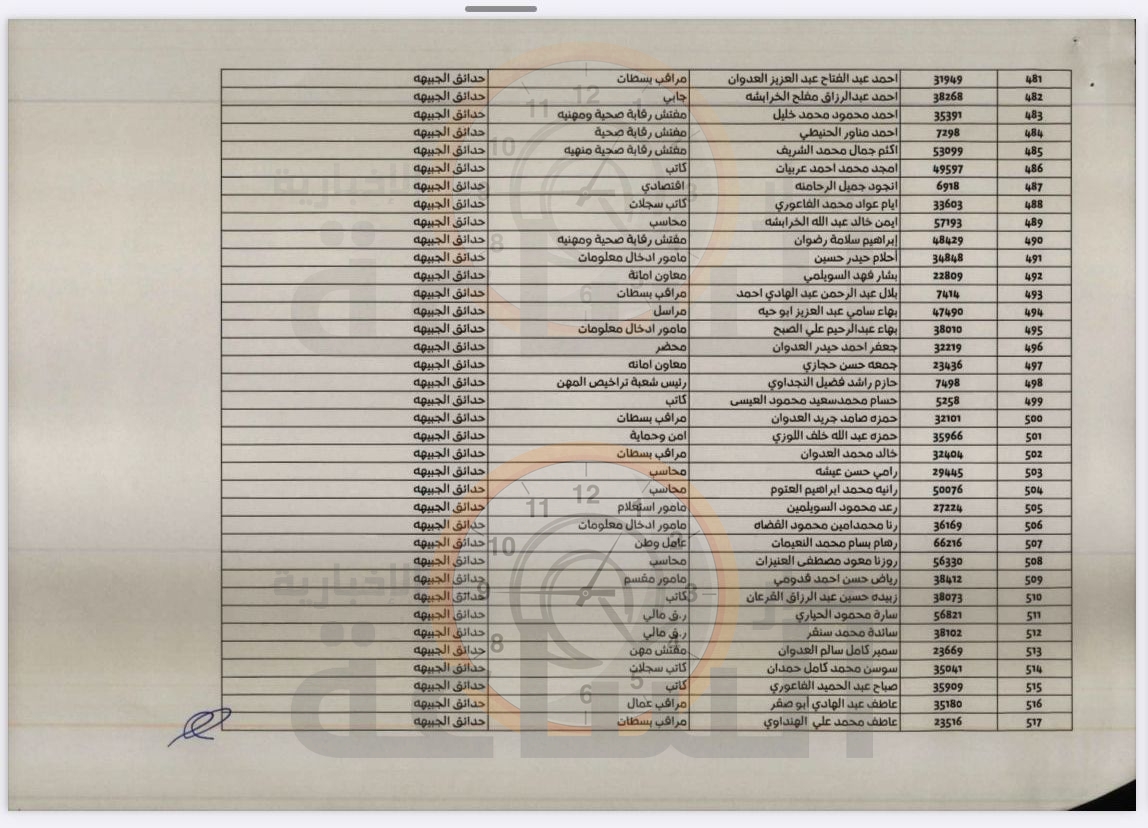 481 31949 احمد عبد الفتاح عبد العزيز العدوان مراقب بسطات حدائق الجبيهه
482 38268 احمد عبدالرزاق مفلح الخرابشه جابي حدائق الجبيهه
483 35391 احمد محمود محمد خليل مفتش رقابة صحية ومهنيه حدائق الجبيهه
484 7298 احمد مناور الحنيطي مفتش رقابة صحية حدائق الجبيهه
485 53099 اكثم جمال محمد الشريف مفتش رقابة صحية منهيه حدائق الجبيهه
486 49597 امجد محمد احمد عربيات كاتب حدائق الجبيهه
487 6918 انجود جميل الرحامنه اقتصادي حدائق الجبيهه
488 33603 ايام عواد محمد الفاعوري كاتب سجلات حدائق الجبيهه
489 57193 ايمن خالد عبد الله الخرابشه محاسب حدائق الجبيهه
490 48429 إبراهيم سلامة رضوان مفتش رقابة صحية ومهنيه حدائق الجبيهه
491 34848 أحلام حيدر حسين مامور ادخال معلومات حدائق الجبيهه
492 22809 بشار فهد السويلمي معاون امانة حدائق الجبيهه
493 7414 بلال عبد الرحمن عبد الهادي احمد مراقب بسطات حدائق الجبيهه
494 47490 بهاء سامي عبد العزيز ابو حيه مراسل حدائق الجبيهه
495 38010 بهاء عبدالرحيم علي الصبح مامور ادخال معلومات حدائق الجبيهه
496 32219 جعفر احمد حيدر العدوان محضر حدائق الجبيهه
497 23436 جمعه حسن حجازي معاون امانه حدائق الجبيهه
498 7498 حازم راشد فضيل النجداوي رئيس شعبة تراخيص المهن حدائق الجبيهه
499 5258 حسام محمدسعيد محمود العيسى كاتب حدائق الجبيهه
500 32101 حمزه صامد جريد العدوان مراقب بسطات حدائق الجبيهه
501 35966 حمزه عبد الله خلف اللوزي امن وحماية حدائق الجبيهه
502 32404 خالد محمد العدوان مراقب بسطات حدائق الجبيهه
503 29445 رامي حسن عيشه محاسب حدائق الجبيهه
504 50076 رانيه محمد ابراهيم العتوم محاسب حدائق الجبيهه
505 27224 رعد محمود السويلمين مامور استعلام حدائق الجبيهه
506 36169 رنا محمدامين محمود القضاه مامور ادخال معلومات حدائق الجبيهه
507 66216 رهام بسام محمد النعيمات عامل وطن حدائق الجبيهه
508 56330 روزنا معود مصطفى العنيزات محاسب حدائق الجبيهه
509 38412 رياض حسن احمد قدومي مامور مقسم حدائق الجبيهه
510 38073 زبيده حسين عبد الرزاق القرعان كاتب حدائق الجبيهه
511 56821 سارة محمود الحياري ر.ق مالي حدائق الجبيهه
512 38102 سائدة محمد سنقر ر.ق مالي حدائق الجبيهه
513 23669 سمير كامل سالم العدوان مفتش مهن حدائق الجبيهه
514 35041 سوسن محمد كامل حمدان كاتب سجلات حدائق الجبيهه
515 35909 صباح عبد الحميد الفاعوري كاتب حدائق الجبيهه
516 35180 عاطف عبد الهادي أبو صقر مراقب عمال حدائق الجبيهه
517 23516 عاطف محمد علي الهنداوي مراقب بسطات حدائق الجبيهه